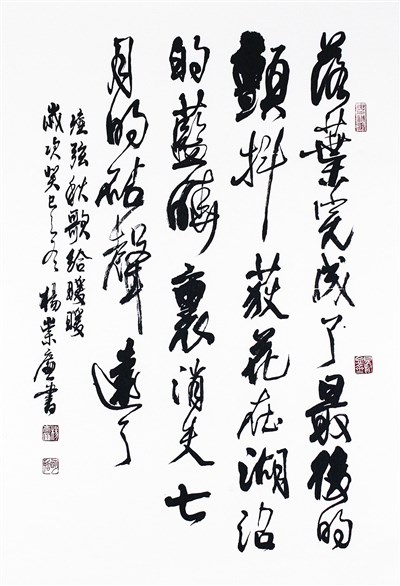 落葉完成了最後的
顫抖荻花在湖沼
的藍睛裏消失七
月的砧聲遠了
瘂弦秋歌給暖暖
歲次癸巳之冬楊崇書